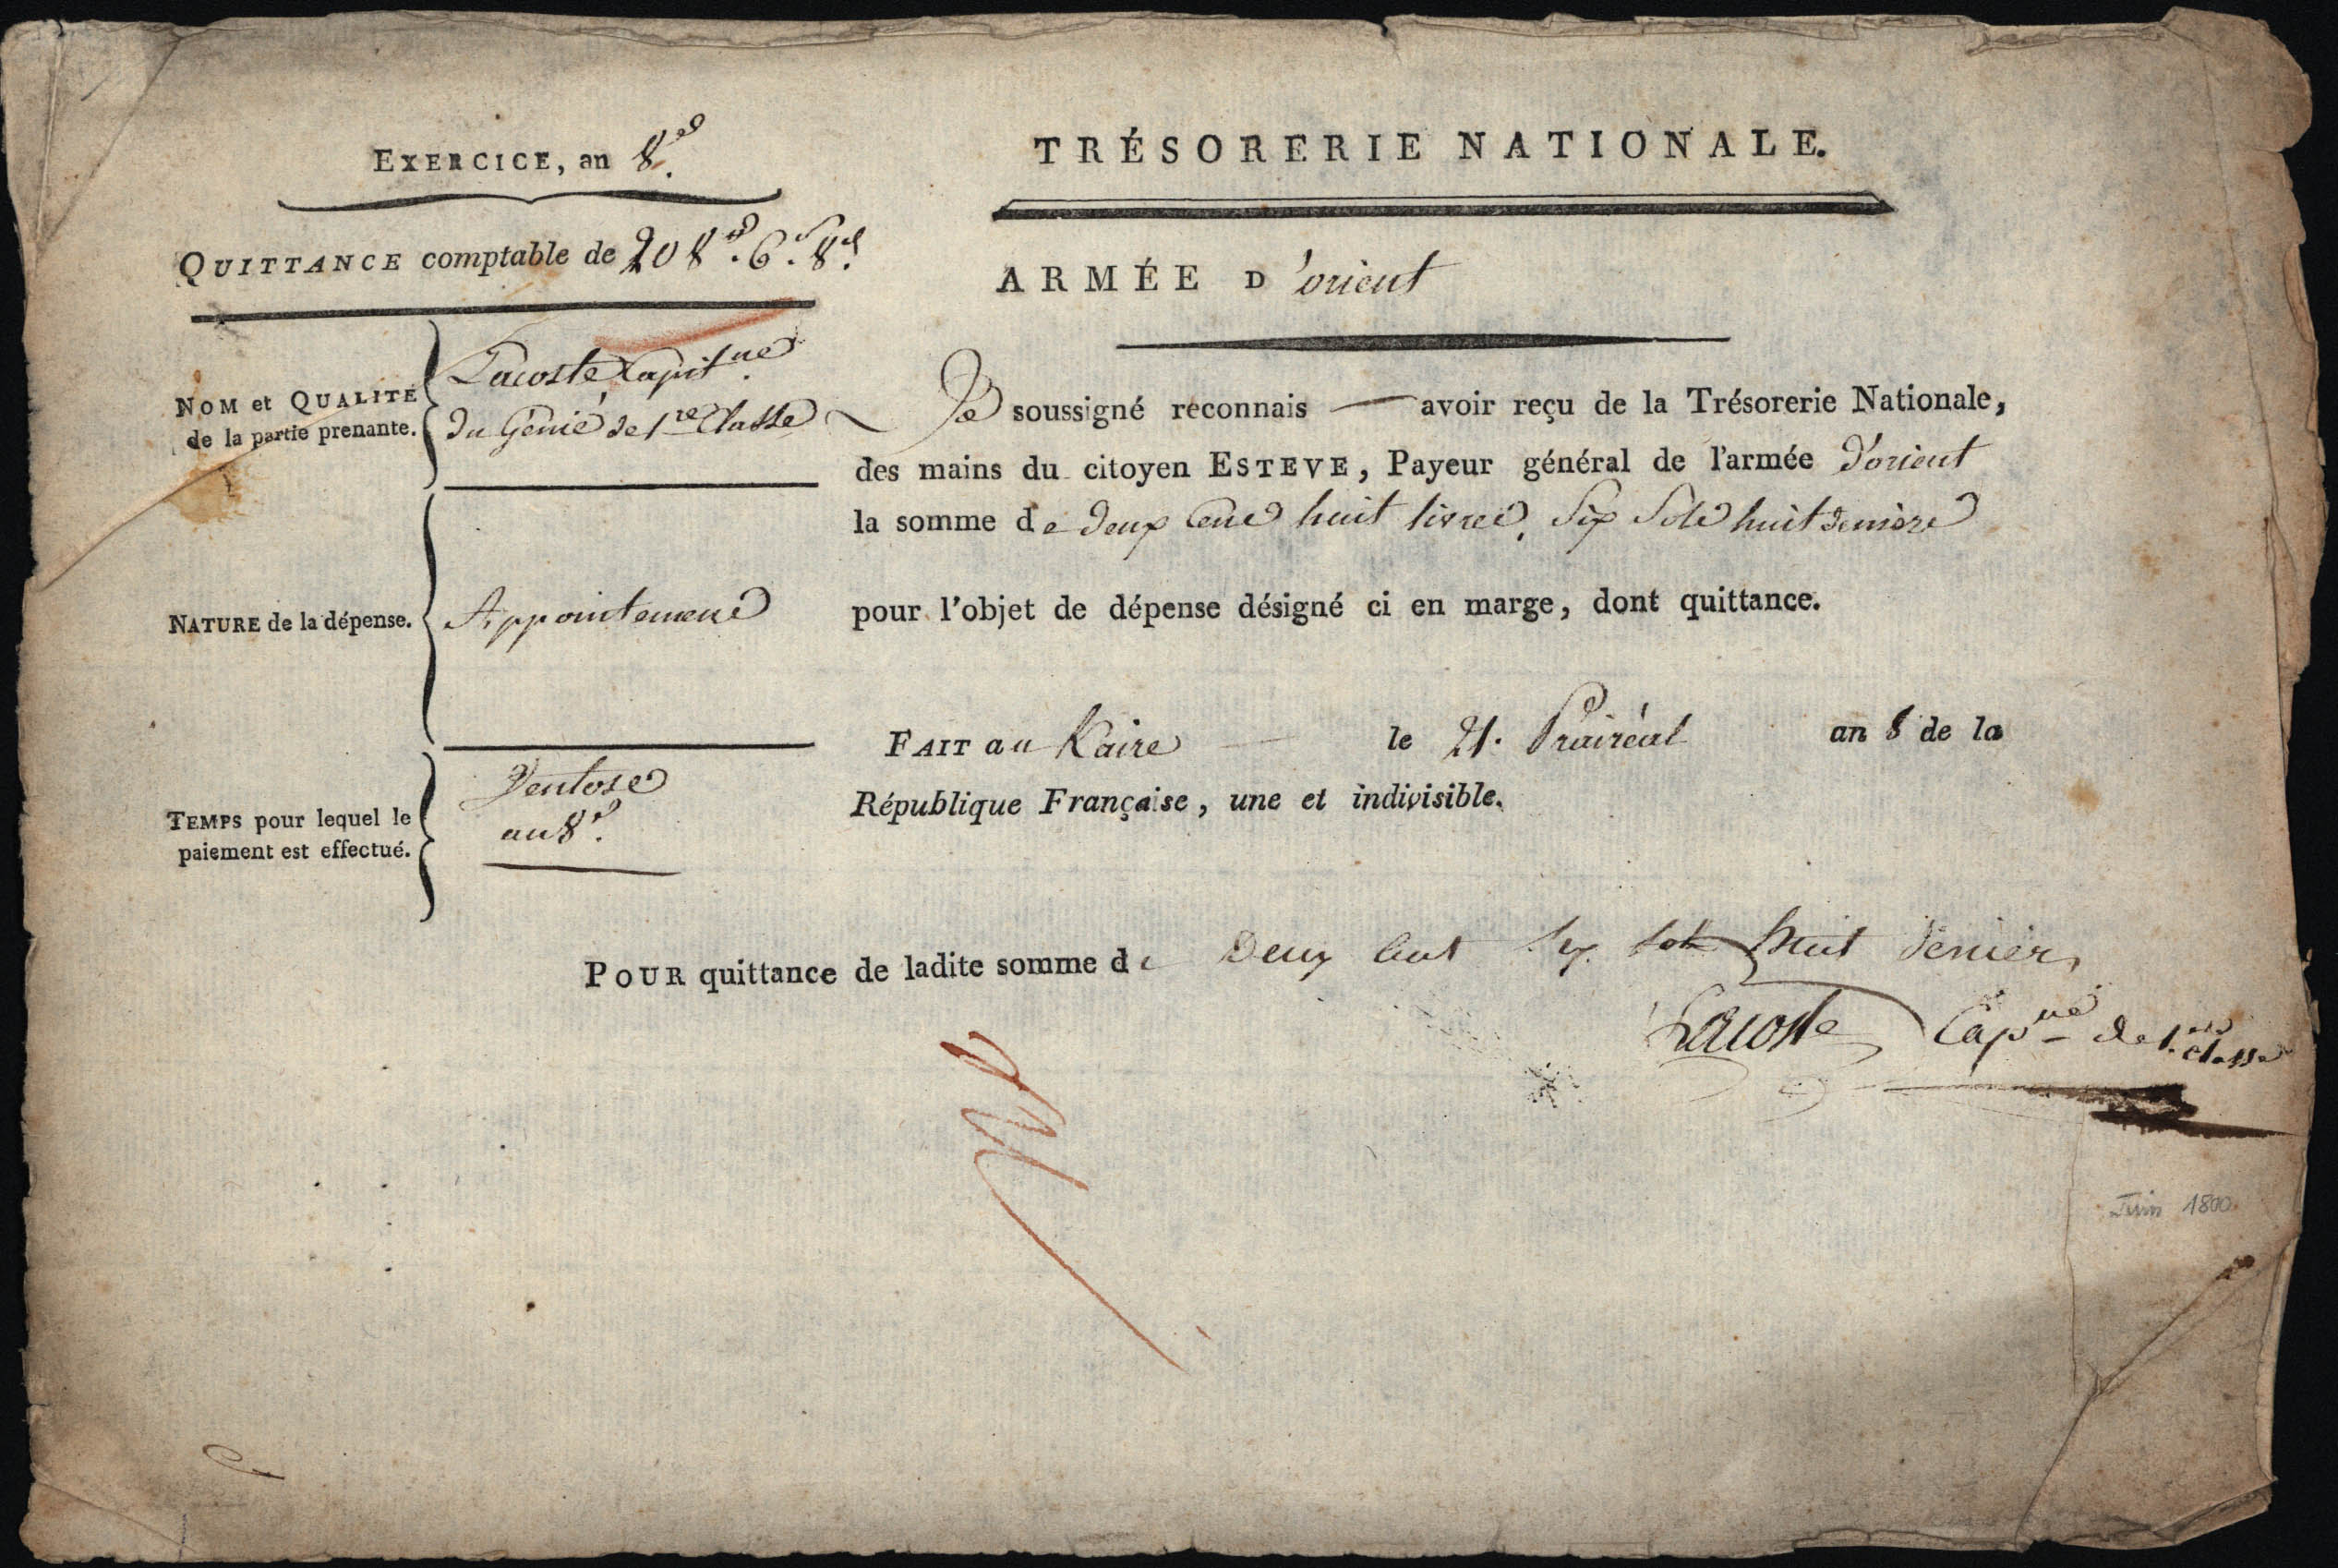 EXERCICE, an 8.e
QUITTANCE comptable de 208.tt 6.s 8.d
NOM et QUALITÉ
de la partie prenante.
Lacoste, Capit.ne
du Génie de 1re Classe
NATURE de la dépense.
Appointemens
TEMPS pour lequel le
paiement est effectué.
Ventose
an 8.e
TRÉSORERIE NATIONALE.
ARMÉE D'orient
Je soussigné reconnais — avoir reçu de la Trésorerie Nationale,
des mains du citoyen ESTEVE, Payeur général de l'armée d'orient
la somme de deux Cens huit livres, Six Sols huit deniers
pour l'objet de dépense désigné ci en marge, dont quittance.
FAIT au Kaire — le 21. Prairéal an 8 de la
République Française, une et indivisible.
POUR quittance de ladite somme de Deux Cent Six sols huit deniers
Lacoste Capne de 1.ere classe
Juin 1800